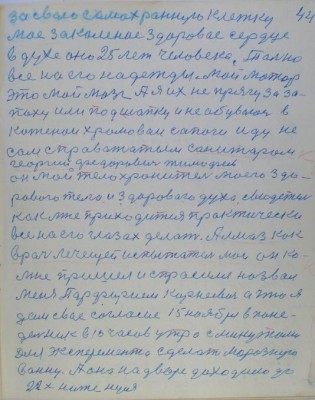 44
за свою самохранную клетку
мое закаленое здоровае сердце
в духе оно 25 лет человека. Толко
все на его надежды. мой мотор
это мой мозг А я их не прячу за за-
паху или под шапку и не абуваю в
кожаной хромовай сапоги иду не
сам справажатым санитаром
георгий федорович
он мой телохранител моего здо-
рового тело и здорового духа, свидетел
как мне приходится практически
все на его глазах делат. Алмаз как
врач лечащет испытател мое он ко
мне пришел и спрасил и назвал
меня Парфирием Корнеевич а это я
дал свае согласие 15 ноября в поне-
делник в 10 часов утра с минутами
для экспермента сделат морозную
ванну. А она на дворе даходило до
22х ниже нуля